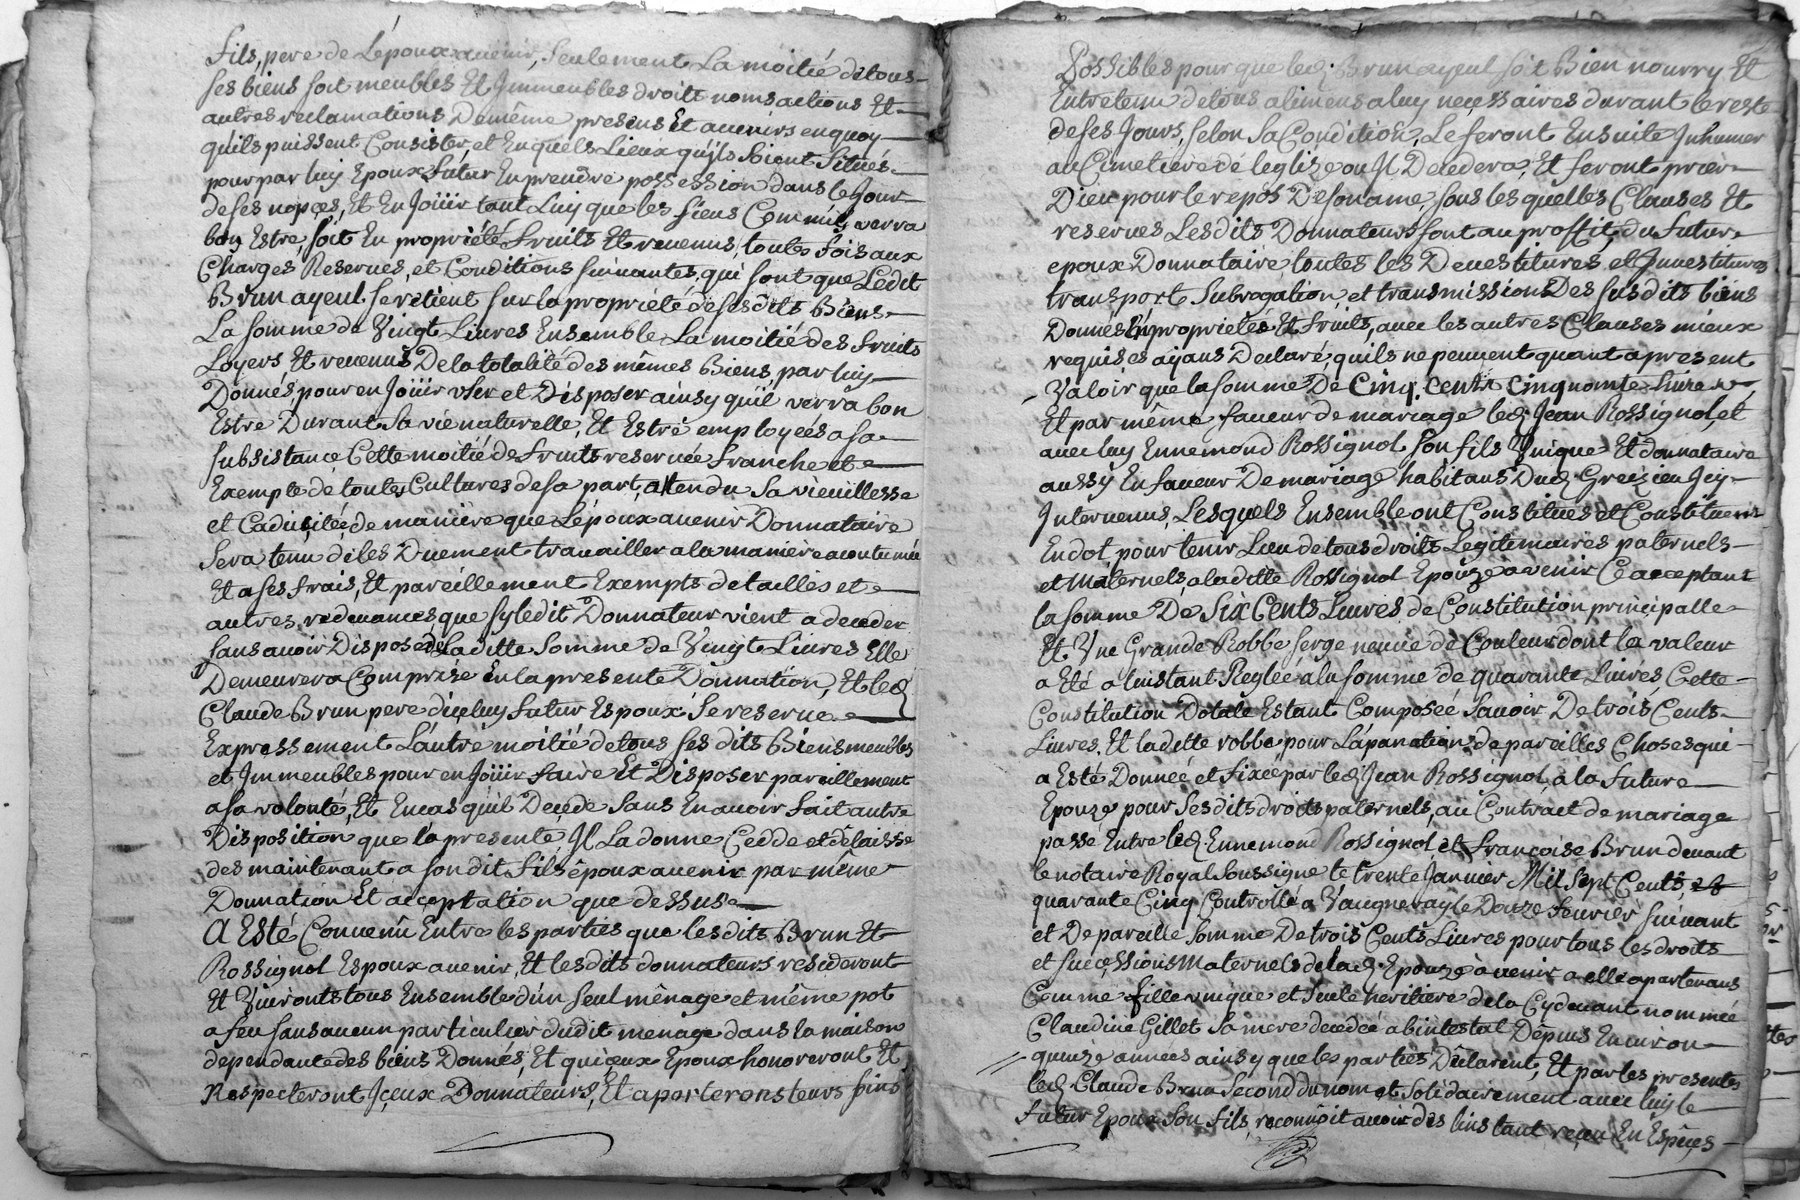 fils, pere de Lépoux avenir, seulement La moitié de tous
ses biens soit meubles Et Jmmeubles droits noms actions Et
autres reclamations De même presens Et avenirs en quoy
qu'ils puissent Consister, et En quels Lieux qu'ils soient situés
pour par luy Epoux futur En prendre possession dans le Jour
de ses nopçes, Et En Joüir tant Luy que les siens Comm'il verra
bon Estre, soit En propriété fruits Et revenus, toutes fois aux
Charges Reserves, et Conditions suivantes, qui sont que Ledit
Brun ayeul se retient sur la propriété de ses dits Biens
La somme de Vingt Livres Ensemble La moitié des fruits
Loyers Et revenus De la totalité des mêmes Biens, par luy
Donnés, pour en Joüir vser et Disposer ainsy qu'il verra bon
Estre Durant Sa vie naturelle, Et Estre employées a sa
subsistance Cette moitié de fruits reservée franche et
Exempte de toutes Cultures de sa part, attendu Sa vieuillesse
et Caducitée, de maniere que Lépoux avenir Donnataire
Sera tenu d'iles Duement travailler a la maniere acoutumée
Et a ses frais, Et pareillement Exempts de tailles et
autres redevances que sy ledit Donnateur vient a deceder
sans avoir Disposé de Ladite Somme de Vingt Livres Elle
Demeurera Comprise En la presente Donnation, Et led.
Claude Brun pere d'iceluy futur Espoux Se reserve
Expressement Lautre moitié de tous ses dits Biens meubles
et Jmmeubles pour en Joüir faire Et Disposer pareillement
a sa volonté, Et En cas qu'il Decede Sans En avoir fait autre
Disposition que la presente, Jl La donne Cedde et délaisse
des maintenant a son dit fils époux avenir par même
Donnation Et acceptation que dessus
A Esté Convenû Entre les parties que lesdits Brun Et
Rossignol Espoux avenir, Et lesdits donnateurs resideront
Et Vivronts tous Ensemble d'un seul ménage et même pot
a feu sans aucun particulier dudit menage dans la maison
dependante des biens Donnés, Et qu'iceux Epoux honoreront Et
Respecteront Jceux Donnateurs, Et aporteronts leurs soins
Possibles pour que led. Brun ayeul soit Bien nourry Et
Entretenu de tous alimens a luy necessaires durant le reste
de ses Jours, selon Sa Condition, Le feront Ensuite Jnhumer
au Cimetiere de leglize ou Jl Decedera, Et feront prier
Dieu pour le repos De son ame, sous les quelles Clauses Et
reserves Lesdits Donnateurs font au proffit du futur
epoux Donnataire toutes les Devestitures et Jnvestitures
transport, Subrogation, et transmission Des susdits biens
Donnés En proprietés Et fruits, avec les autres Clauses mieux
requises ayans Declaré qu'ils ne peuvent quant a present
Valoir que la somme De Cinq Cents Cinquante Livres
Et par même faveur de mariage led. Jean Rossignol, et
avec luy Ennemond Rossignol son fils Vnique Et donnataire
aussy En faveur De mariage habitans Dud. Grezieu Jcy
Jntervenus, Lesquels Ensemble ont Constitués et Constituent
En dot, pour tenir Lieu de tous droits Legitimaires paternels
et Maternels, a ladite Rossignol Epouze avenir Ce acceptant
la somme De Six Cents Livres de Constitution principalle
Et Vne Grande Robbe serge neuve de Couleur dont la valeur
a Eté a linstant Reglée a la somme de quarante Livres, Cette
Constitution Dotale Estant Composée Savoir De trois Cents
Livres, Et ladite robbe pour Laparation de pareilles Choses qui
a Esté Donnée et fixée par led. Jean Rossignol a la future
Epouze pour Sesdits droits paternels, au Contract de mariage
passé Entre led. Ennemond Rossignol et Françoise Brun devant
le notaire Royal Soussigné le trente Janvier Mil Sept Cents
quarante Cinq Controllé a Vaugneray le Douze fevrier suivant
et De pareille Somme De trois Cents Livres pour tous les droits
et successions Maternels de lad. Epouze avenir a elle apartenans
Comme fille vnique et Seule heritiere de la Cydevant nommée
Claudine Gillet Sa mere decedée abintestat Depuis Environ
quinze années ainsy que les parties Déclarent, Et par les presentes
led. Claude Brun Second du nom et Solidairement avec luy le
futur Epoux Son fils, reconnoit avoir des linstant reçeu En Espéçes